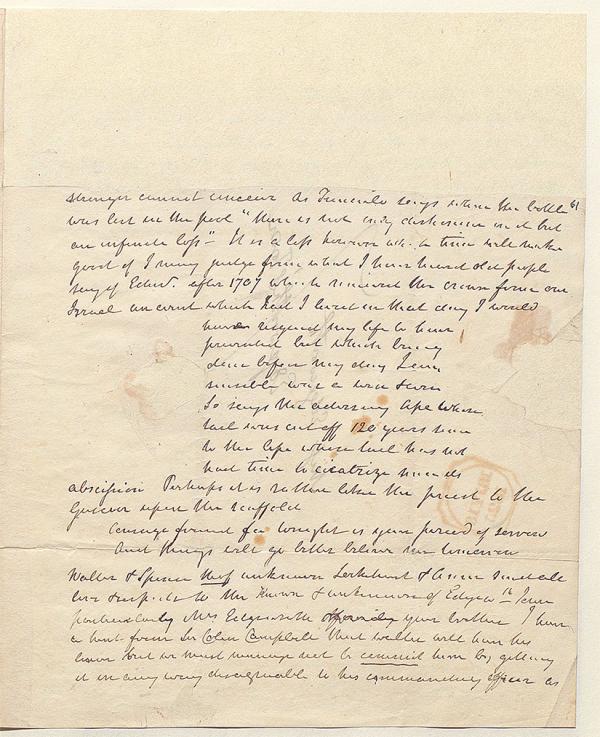 stranger cannot conceive As Trinculo says when the bottle
was lost in the pool "there is not only dishonour in it but
an infinite loss" - It is a loss however which time will make
good if I may judge from what I have heard old people
say of Edinr. after 1707 which removed the crown from our
Israel an event which had I lived in that day I would
have resigned my life to have
prevented but which being
done before my day I am
sensible was a wise
So says the adversary Ape whose
tail was cut off 120 years since
to the Ape whose tail has not
had time to cicatrize since its
abscission Perhaps it is rather like the priest to the
upon the scaffold
Courage friend for tonight is your period of sorrow
And things will go better believe me tomorrow
Walter & Spence tho' unknown Lockhart & Anne send
love & respects to the known & unknown of Edgew'th Town
particularly Mrs Edgeworth your brother I have
a hint from Sir Colin Campbell that Walter will have his
leave but we must manage not to commit him by getting
it in any way disagreeable to his commanding officer as